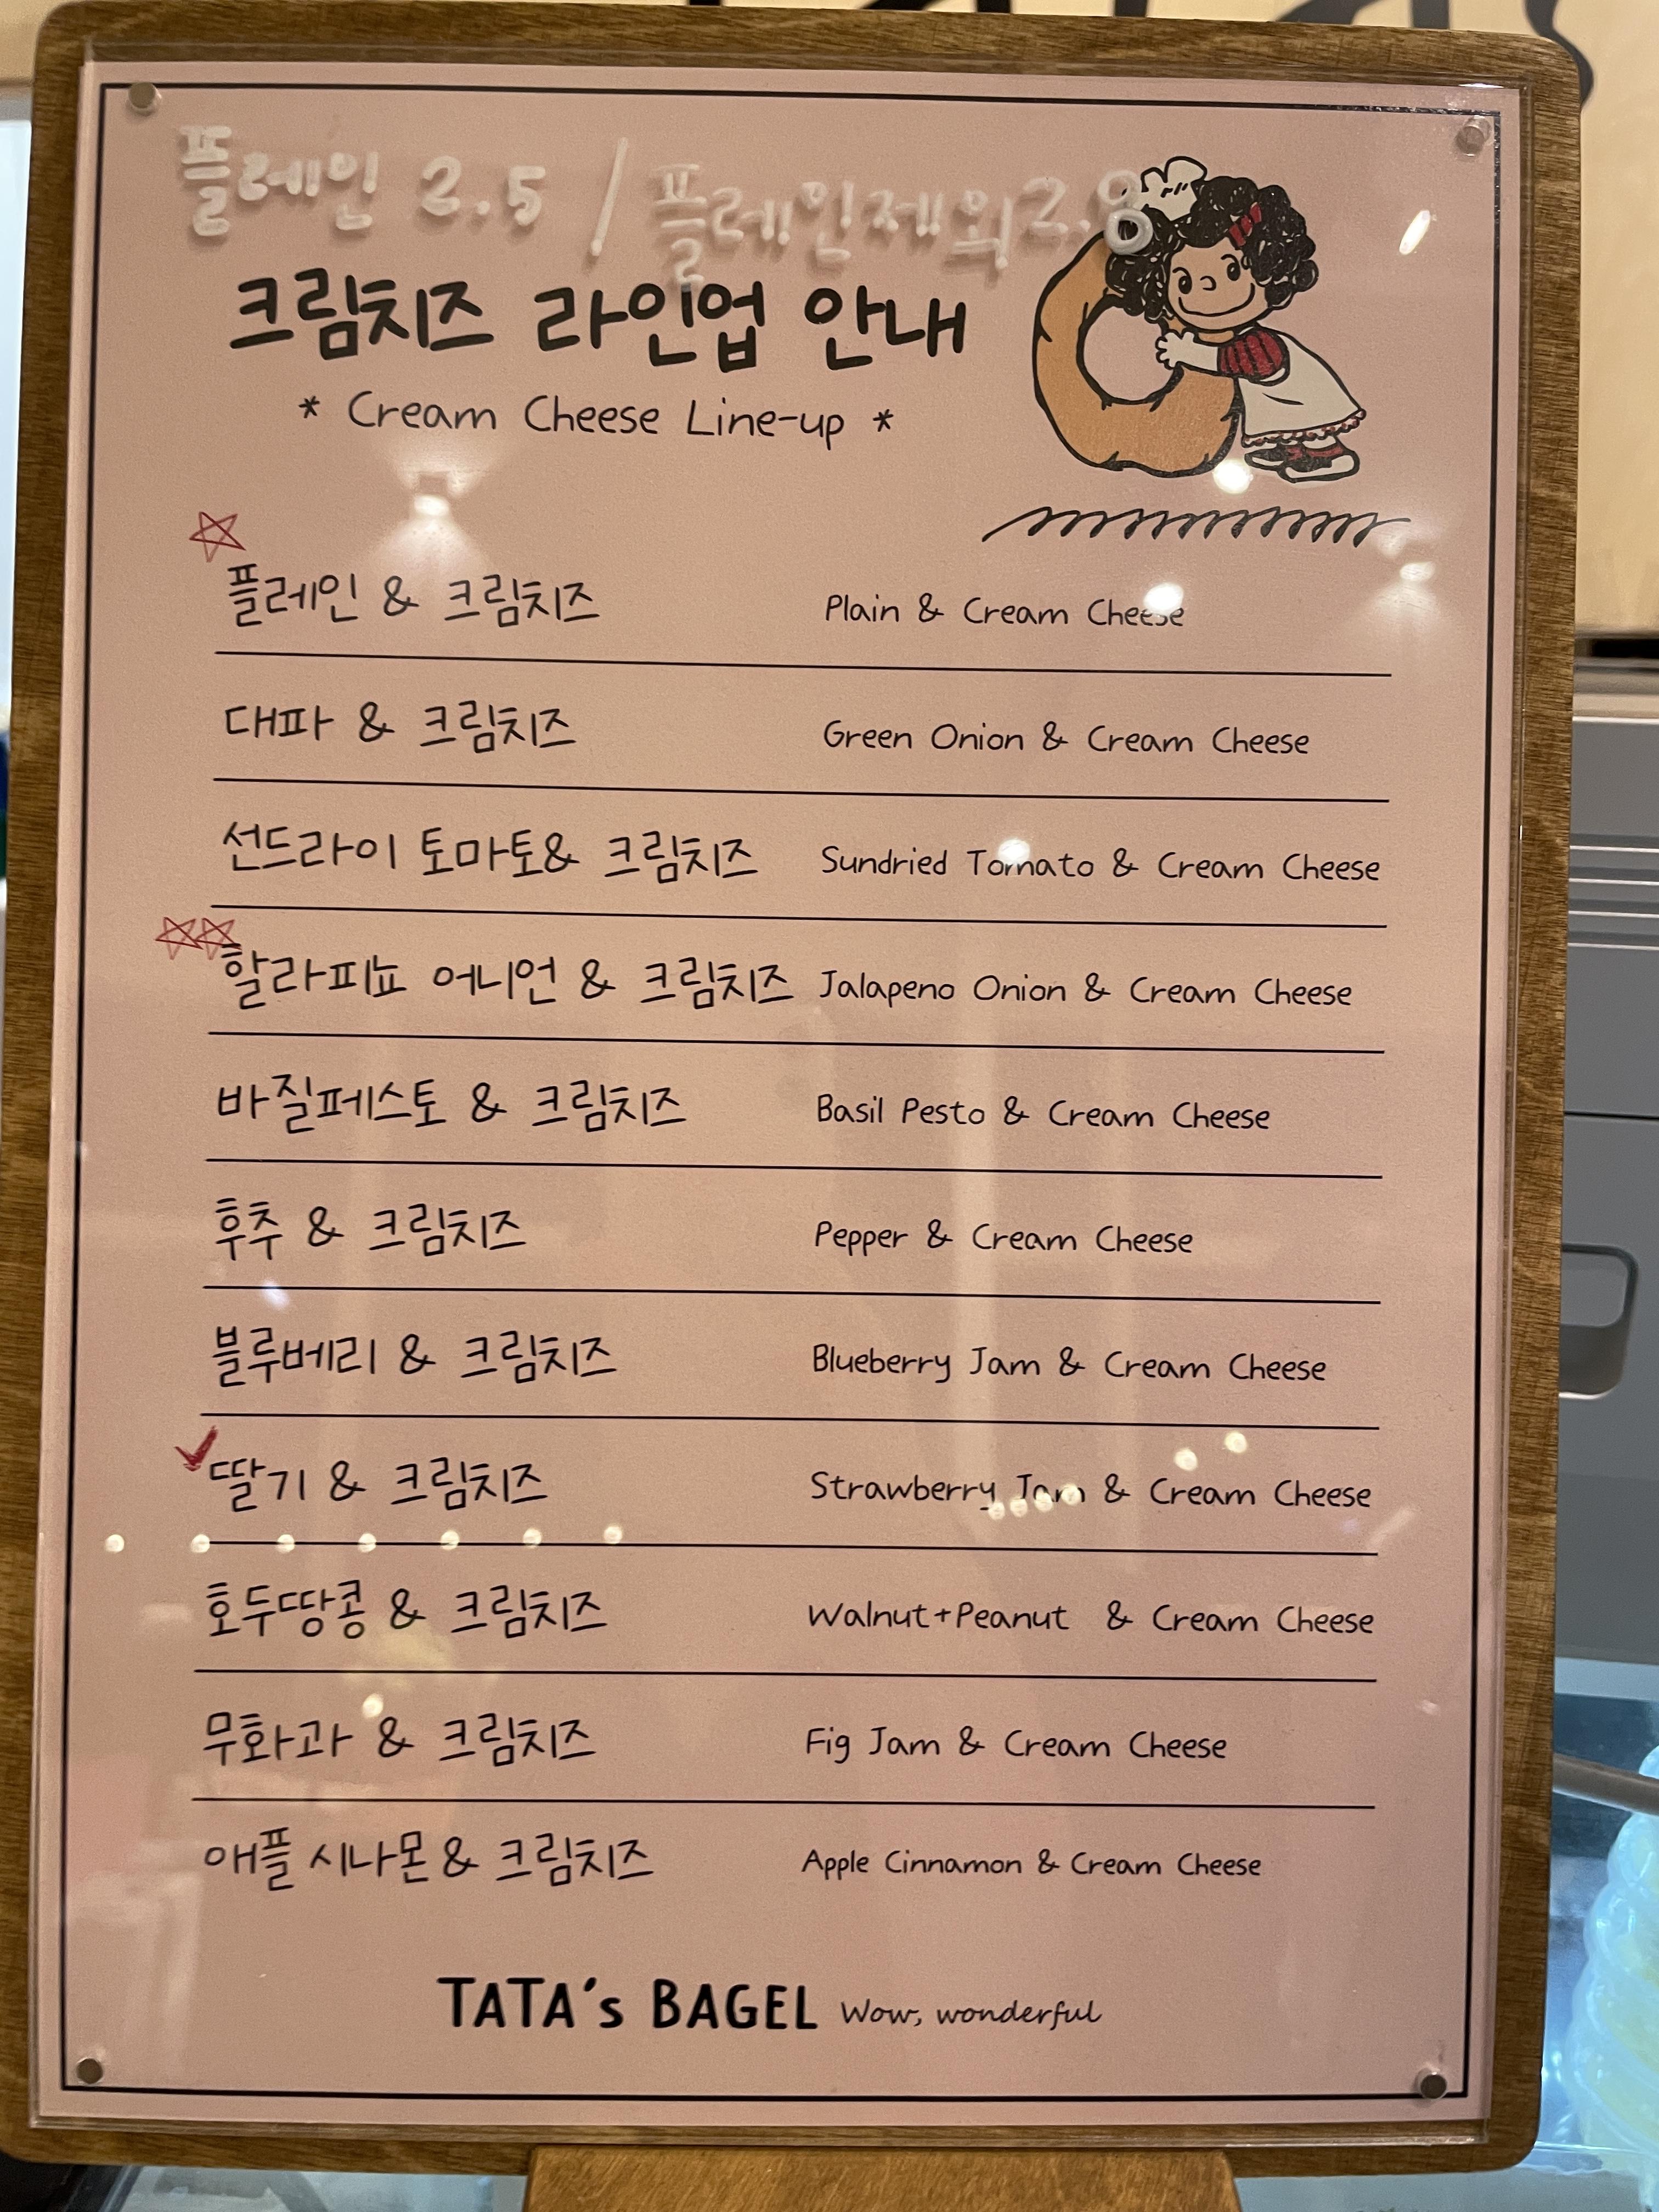 플레인 2.5 / 플레인제외 2.8
크림치즈 라인업 안내
* Cream Cheese Line-up *
플레인 & 크림치즈 Plain & Cream Cheese
대파 & 크림치즈 Green Onion & Cream Cheese
선드라이 토마토& 크림치즈 Sundried Tomato & Cream Cheese
할라피뇨 어니언 & 크림치즈 Jalapeno Onion & Cream Cheese
바질페스토 & 크림치즈 Basil Pesto & Cream Cheese
후추 & 크림치즈 Pepper & Cream Cheese
블루베리 & 크림치즈 Blueberry Jam & Cream Cheese
딸기 & 크림치즈 Strawberry Jam & Cream Cheese
호두땅콩 & 크림치즈 Walnut+Peanut & Cream Cheese
무화과 & 크림치즈 Fig Jam & Cream Cheese
애플 시나몬 & 크림치즈 Apple Cinnamon & Cream Cheese
TATA's BAGEL Wow, wonderful